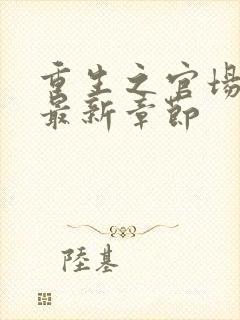 重生之官場
最新章節
陸基